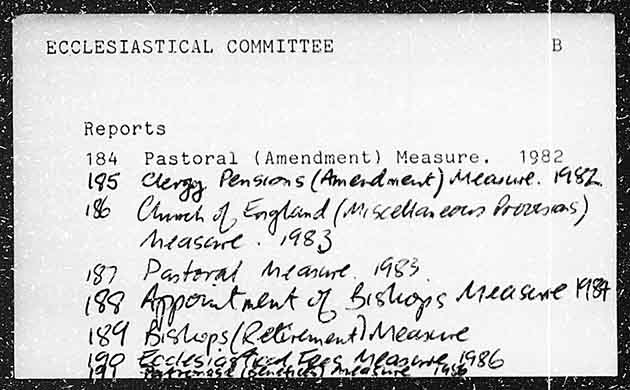 ECCLESIASTICAL COMMITTEE B
Reports
184 Pastoral (Amendment) Measure. 1982
185 Clergy Pensions (Amendment) Measure. 1982.
186 Church of England (Miscellaneous Provisions)
Measure. 1983
187 Pastoral Measure. 1983.
188 Appointment of Bishops Measure 1984
189 Bishops (Retirement) Measure
190 Ecclesiastical Fees Measure 1986
191 Patronage (Benefices) Measure 1986